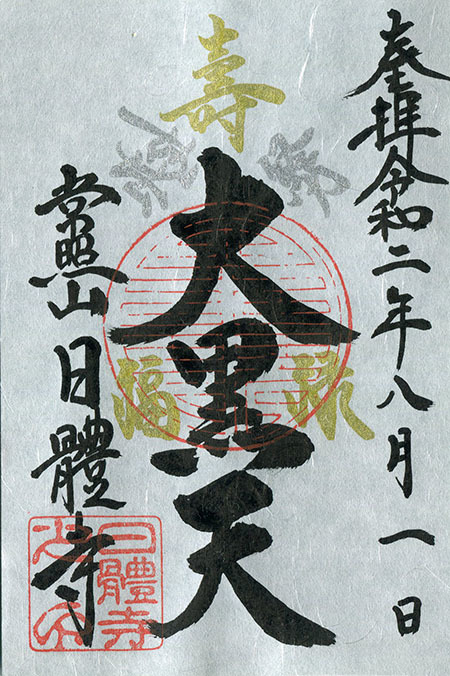 奉拝令和二年八月一日
壽
福
禄
大黒天
常照山日體寺
日體寺